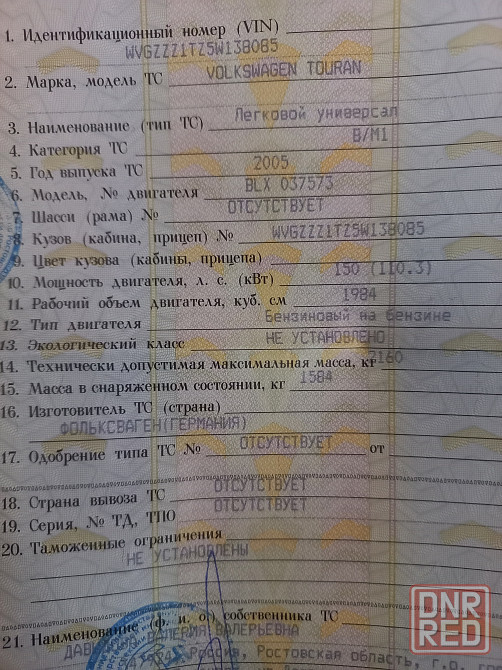 1. Идентификационный номер (VIN)
WVGZZZ1TZ5W138085
2. Марка, модель ТС VOLKSWAGEN TOURAN
3. Наименование (тип ТС) Легковой универсал
4. Категория ТС B/M1
5. Год выпуска ТС 2005
6. Модель, № двигателя BLX 037573
7. Шасси (рама) № ОТСУТСТВУЕТ
8. Кузов (кабина, прицеп) № WVGZZZ1TZ5W138085
9. Цвет кузова (кабины, прицепа)
10. Мощность двигателя, л. с. (кВт) 150 (110.3)
11. Рабочий объем двигателя, куб. см 1984
12. Тип двигателя Бензиновый на бензине
13. Экологический класс НЕ УСТАНОВЛЕНО
14. Технически допустимая максимальная масса, кг 2160
15. Масса в снаряженном состоянии, кг 1584
16. Изготовитель ТС (страна)
ФОЛЬКСВАГЕН(ГЕРМАНИЯ)
17. Одобрение типа ТС № ОТСУТСТВУЕТ от
18. Страна вывоза ТС ОТСУТСТВУЕТ
19. Серия, № ТД, ТПО ОТСУТСТВУЕТ
20. Таможенные ограничения
НЕ УСТАНОВЛЕНЫ
21. Наименование (ф. и. о.) собственника ТС
ВАЛЕРИЯ ВАЛЕРЬЕВНА
Россия, Ростовская область, г.о.
DNR
RED